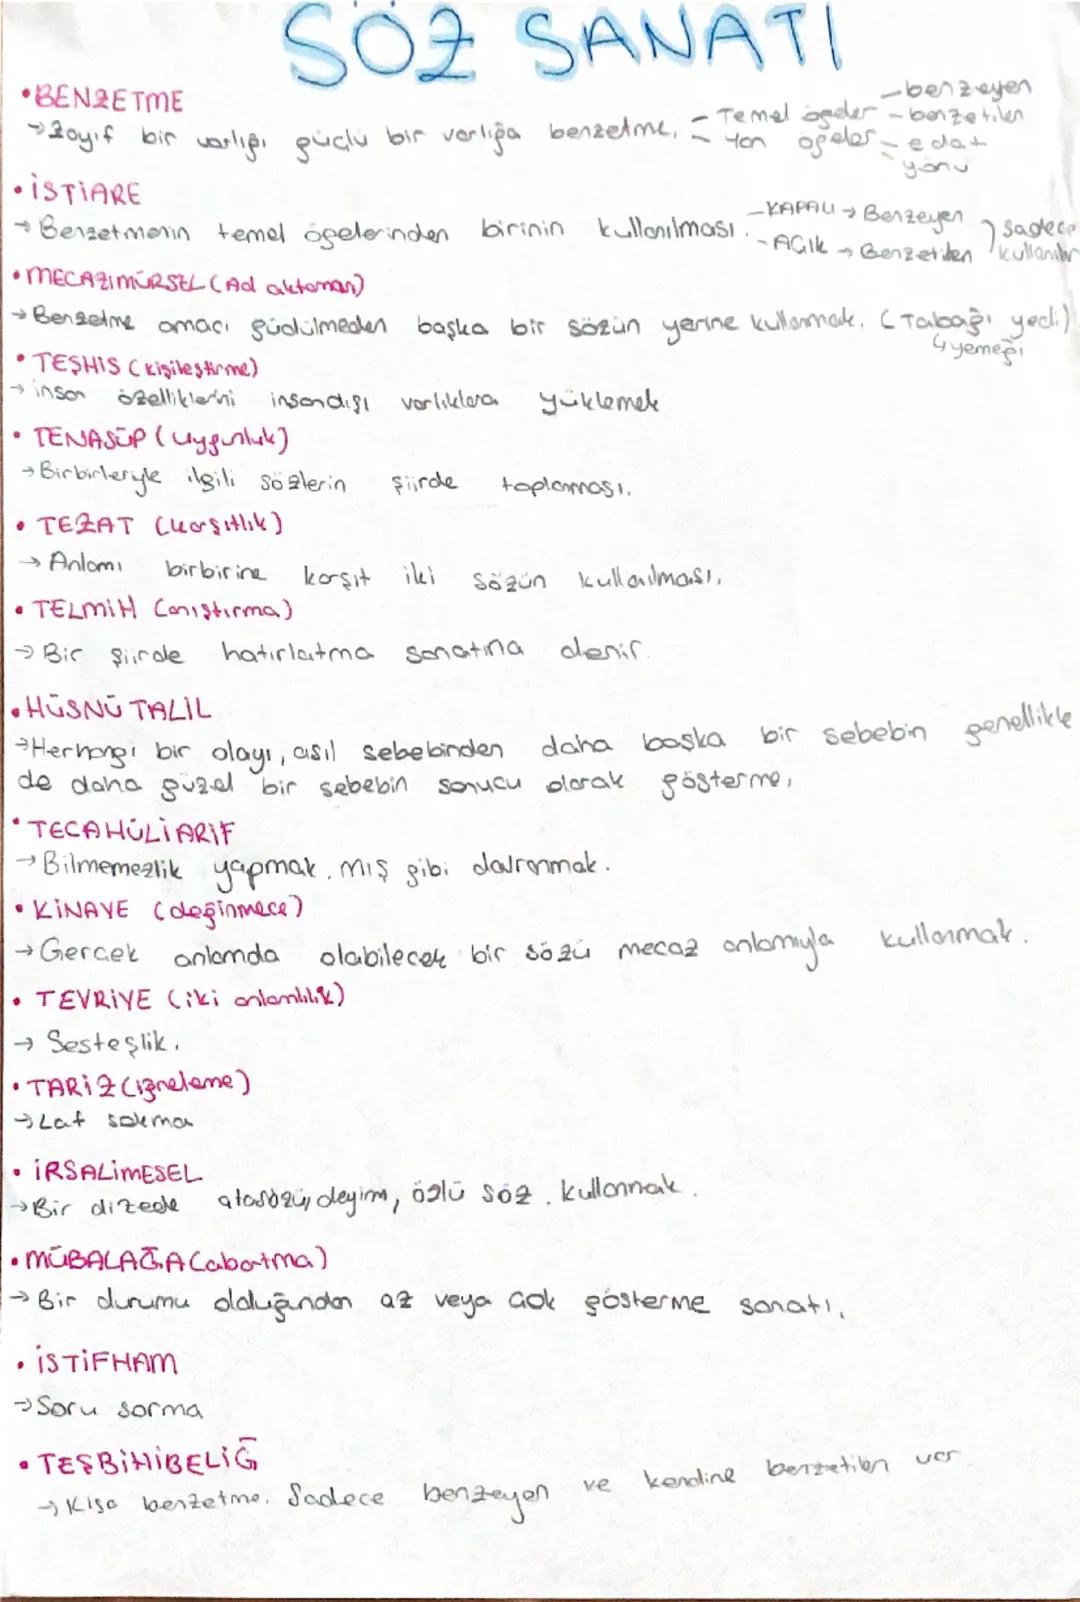 SÖZ SANATI
•BENZETME
→Zayıf bir varlığı güçlü bir varlığa benzetme. - Temel ögeler - benzeyen - benzetilen
- Yan ögeler - edat - yönü
•İSTİARE
→ Benzetmenin temel ögelerinden birinin kullanılması. - KAPALI → Benzeyen
- AÇIK → Benzetilen } sadece kullanılır
•MECAZIMÜRSEL (Ad aktarması)
→ Benzetme amacı güdülmeden başka bir sözün yerine kullanmak. (Tabağı yedi.)
↳ yemeği
• TEŞHİS (kişileştirme)
→ insan özelliklerini insandışı varlıklara yüklemek
• TENASÜP (uygunluk)
→ Birbirleriyle ilgili sözlerin şiirde toplanması.
• TEZAT (karşıtlık)
→ Anlamı birbirine karşıt iki sözün kullanılması.
• TELMİH (anıştırma)
→ Bir şiirde hatırlatma sanatına denir.
•HÜSNÜ TALİL
→Herhangi bir olayı, asıl sebebinden daha başka bir sebebin genellikle
de daha güzel bir sebebin sonucu olarak gösterme.
• TECAHÜLİARİF
→ Bilmemezlik yapmak. mış gibi davranmak.
• KİNAYE (değinmece)
→ Gerçek anlamda olabilecek bir sözü mecaz anlamıyla kullanmak.
• TEVRİYE (iki anlamlılık)
→ Sesteşlik.
• TARİZ (iğneleme)
→ Laf sokma
• İRSALİMESEL
→ Bir dizede atasözü, deyim, özlü söz. kullanmak.
•MÜBALAĞA (abartma)
→ Bir durumu olduğundan az veya çok gösterme sanatı.
• İSTİFHAM
→ Soru sorma
• TEŞBİHİBELİĞ
→ Kısa benzetme. Sadece benzeyen ve kendine benzetilen var